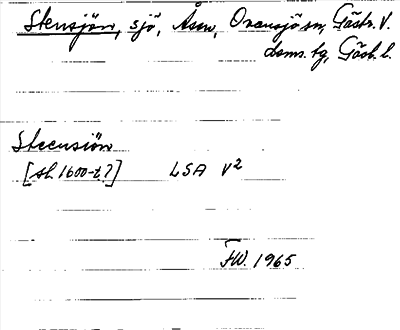 Stensjön, sjö, Åsen, Oxansjö sn, Gästr. V.
dsms. tg, Gästr. l.
Steensiön
[sl. 1600-t.?] LSA V²
FW. 1965